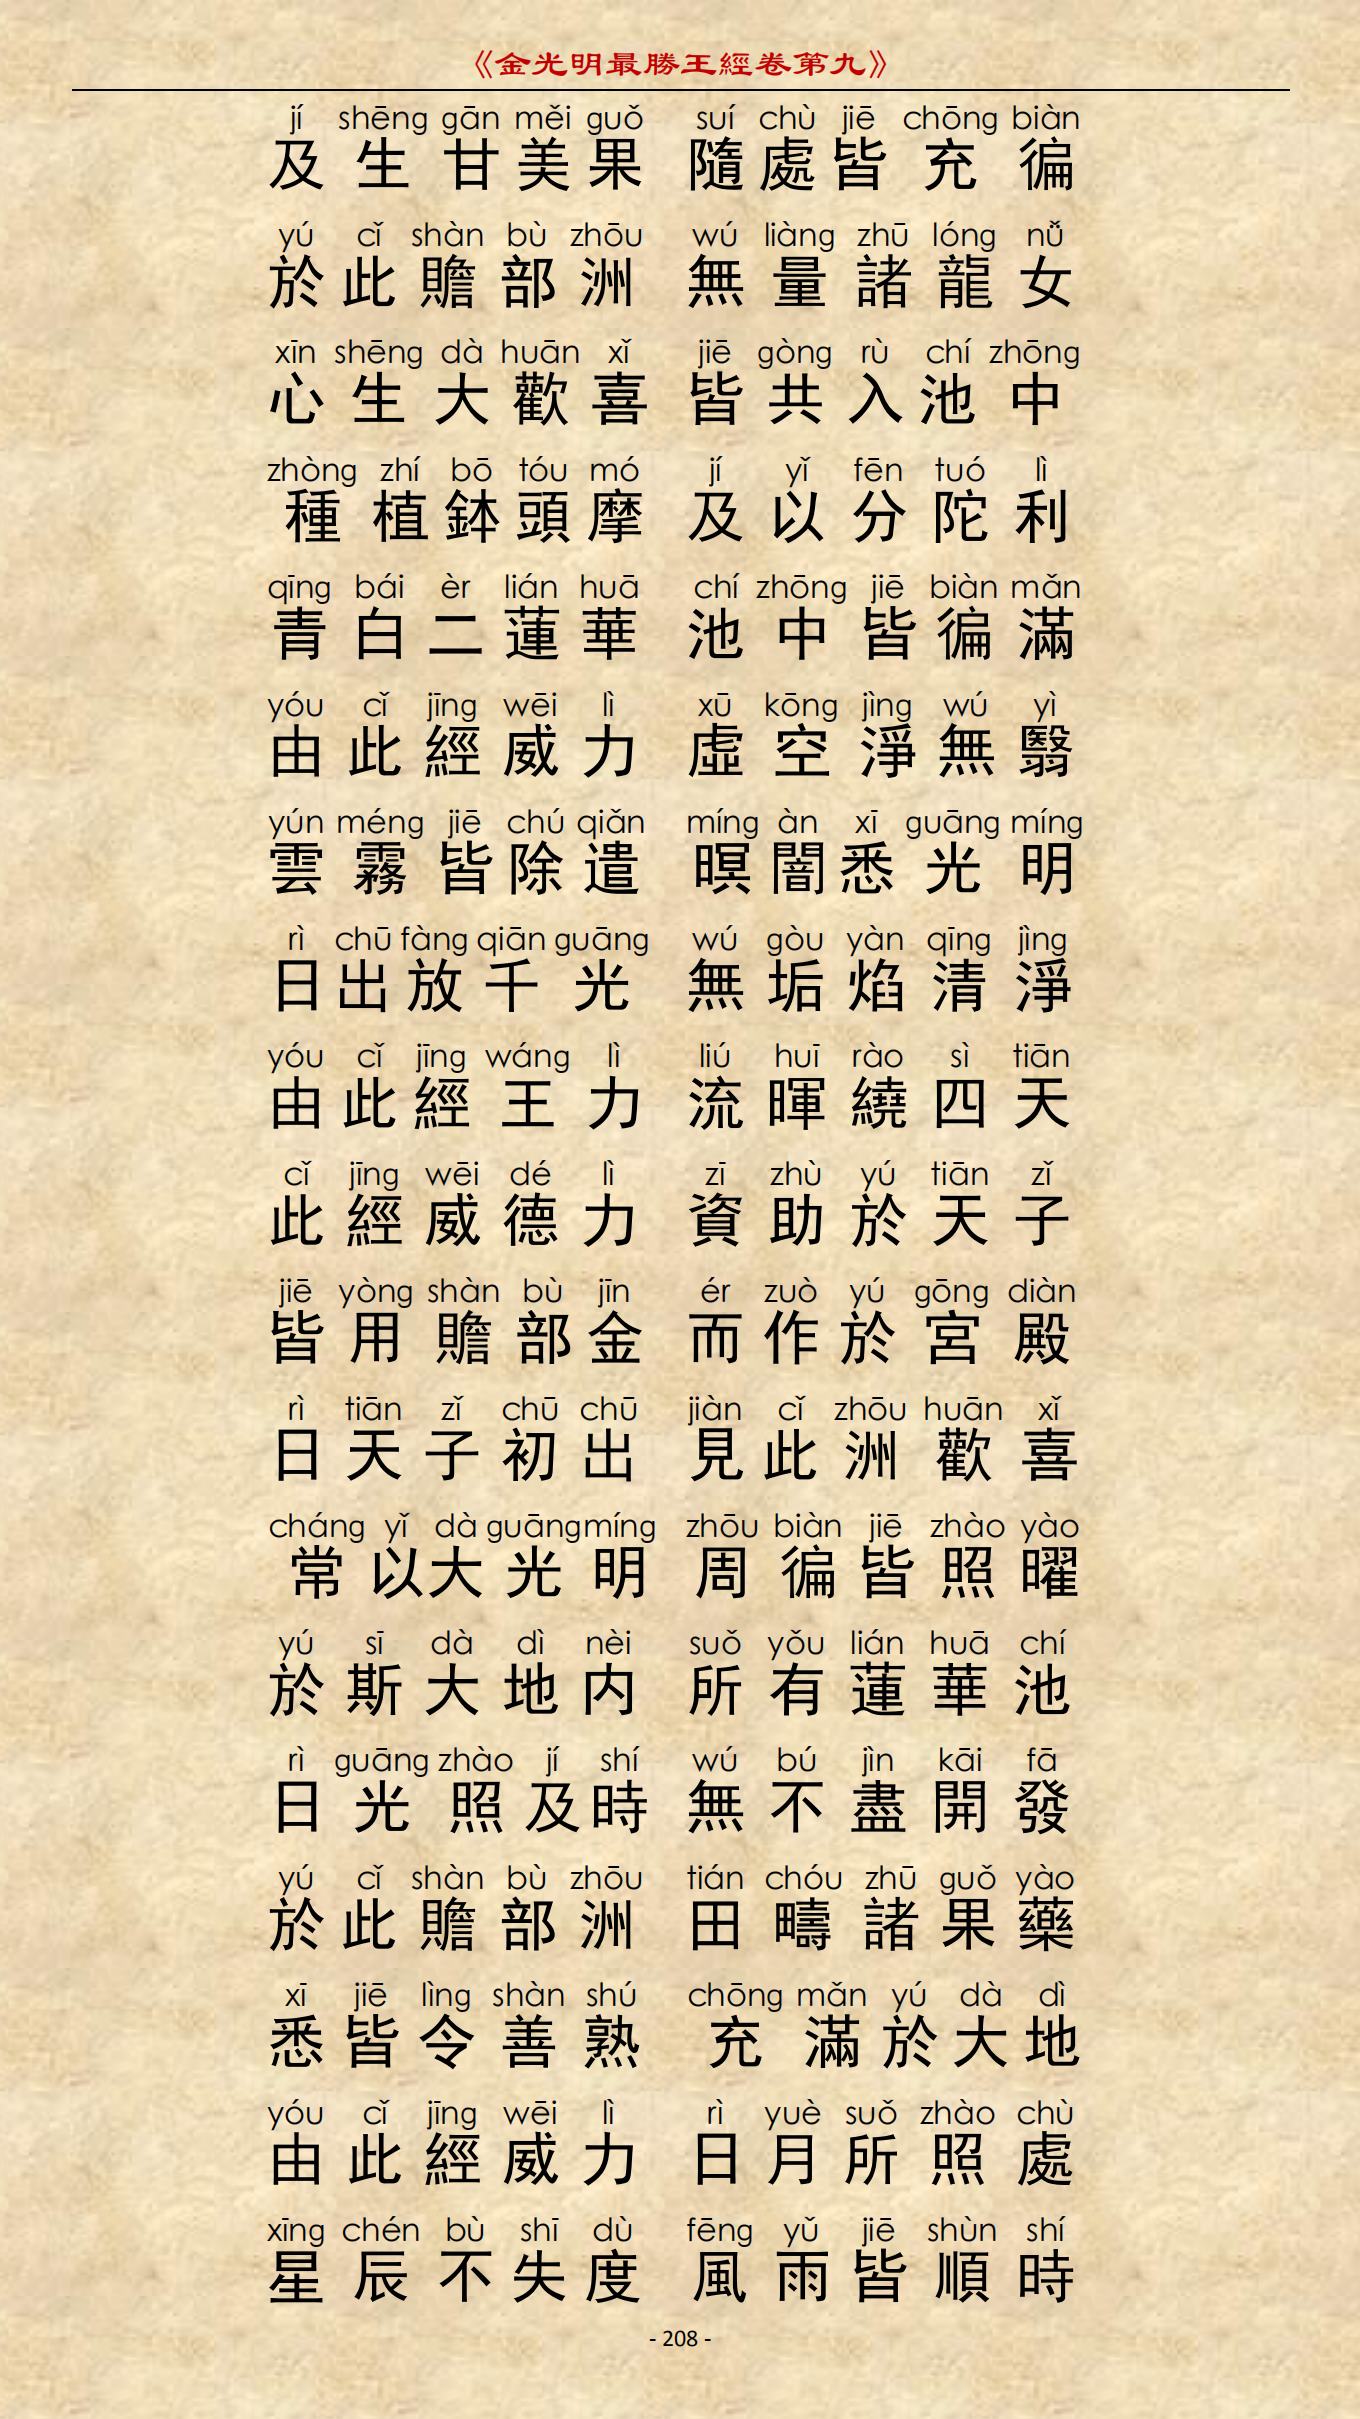 《金光明最勝王經卷第九》
jí shēng gān měi guǒ suí chù jiē chōng biàn
及生甘美果 隨處皆充徧
yú cǐ shàn bù zhōu wú liàng zhū lóng nǚ
於此贍部洲 無量諸龍女
xīn shēng dà huān xǐ jiē gòng rù chí zhōng
心生大歡喜 皆共入池中
zhòng zhí bō tóu mó jí yǐ fēn tuó lì
種植鉢頭摩 及以分陀利
qīng bái èr lián huā chí zhōng jiē biàn mǎn
青白二蓮華 池中皆徧滿
yóu cǐ jīng wēi lì xū kōng jìng wú yì
由此經威力 虛空淨無翳
yún méng jiē chú qiǎn míng àn xī guāng míng
雲霧皆除遣 暝闇悉光明
rì chū fàng qiān guāng wú gòu yàn qīng jìng
日出放千光 無垢焰清淨
yóu cǐ jīng wáng lì liú huī rào sì tiān
由此經王力 流暉繞四天
cǐ jīng wēi dé lì zī zhù yú tiān zǐ
此經威德力 資助於天子
jiē yòng shàn bù jīn ér zuò yú gōng diàn
皆用贍部金 而作於宮殿
rì tiān zǐ chū chū jiàn cǐ zhōu huān xǐ
日天子初出 見此洲歡喜
cháng yǐ dà guāng míng zhōu biàn jiē zhào yào
常以大光明 周徧皆照曜
yú sī dà dì nèi suǒ yǒu lián huā chí
於斯大地内 所有蓮華池
rì guāng zhào jí shí wú bú jìn kāi fā
日光照及時 無不盡開發
yú cǐ shàn bù zhōu tián chóu zhū guǒ yào
於此贍部洲 田疇諸果藥
xī jiē lìng shàn shú chōng mǎn yú dà dì
悉皆令善熟 充滿於大地
yóu cǐ jīng wēi lì rì yuè suǒ zhào chù
由此經威力 日月所照處
xīng chén bù shī dù fēng yǔ jiē shùn shí
星辰不失度 風雨皆順時
- 208 -